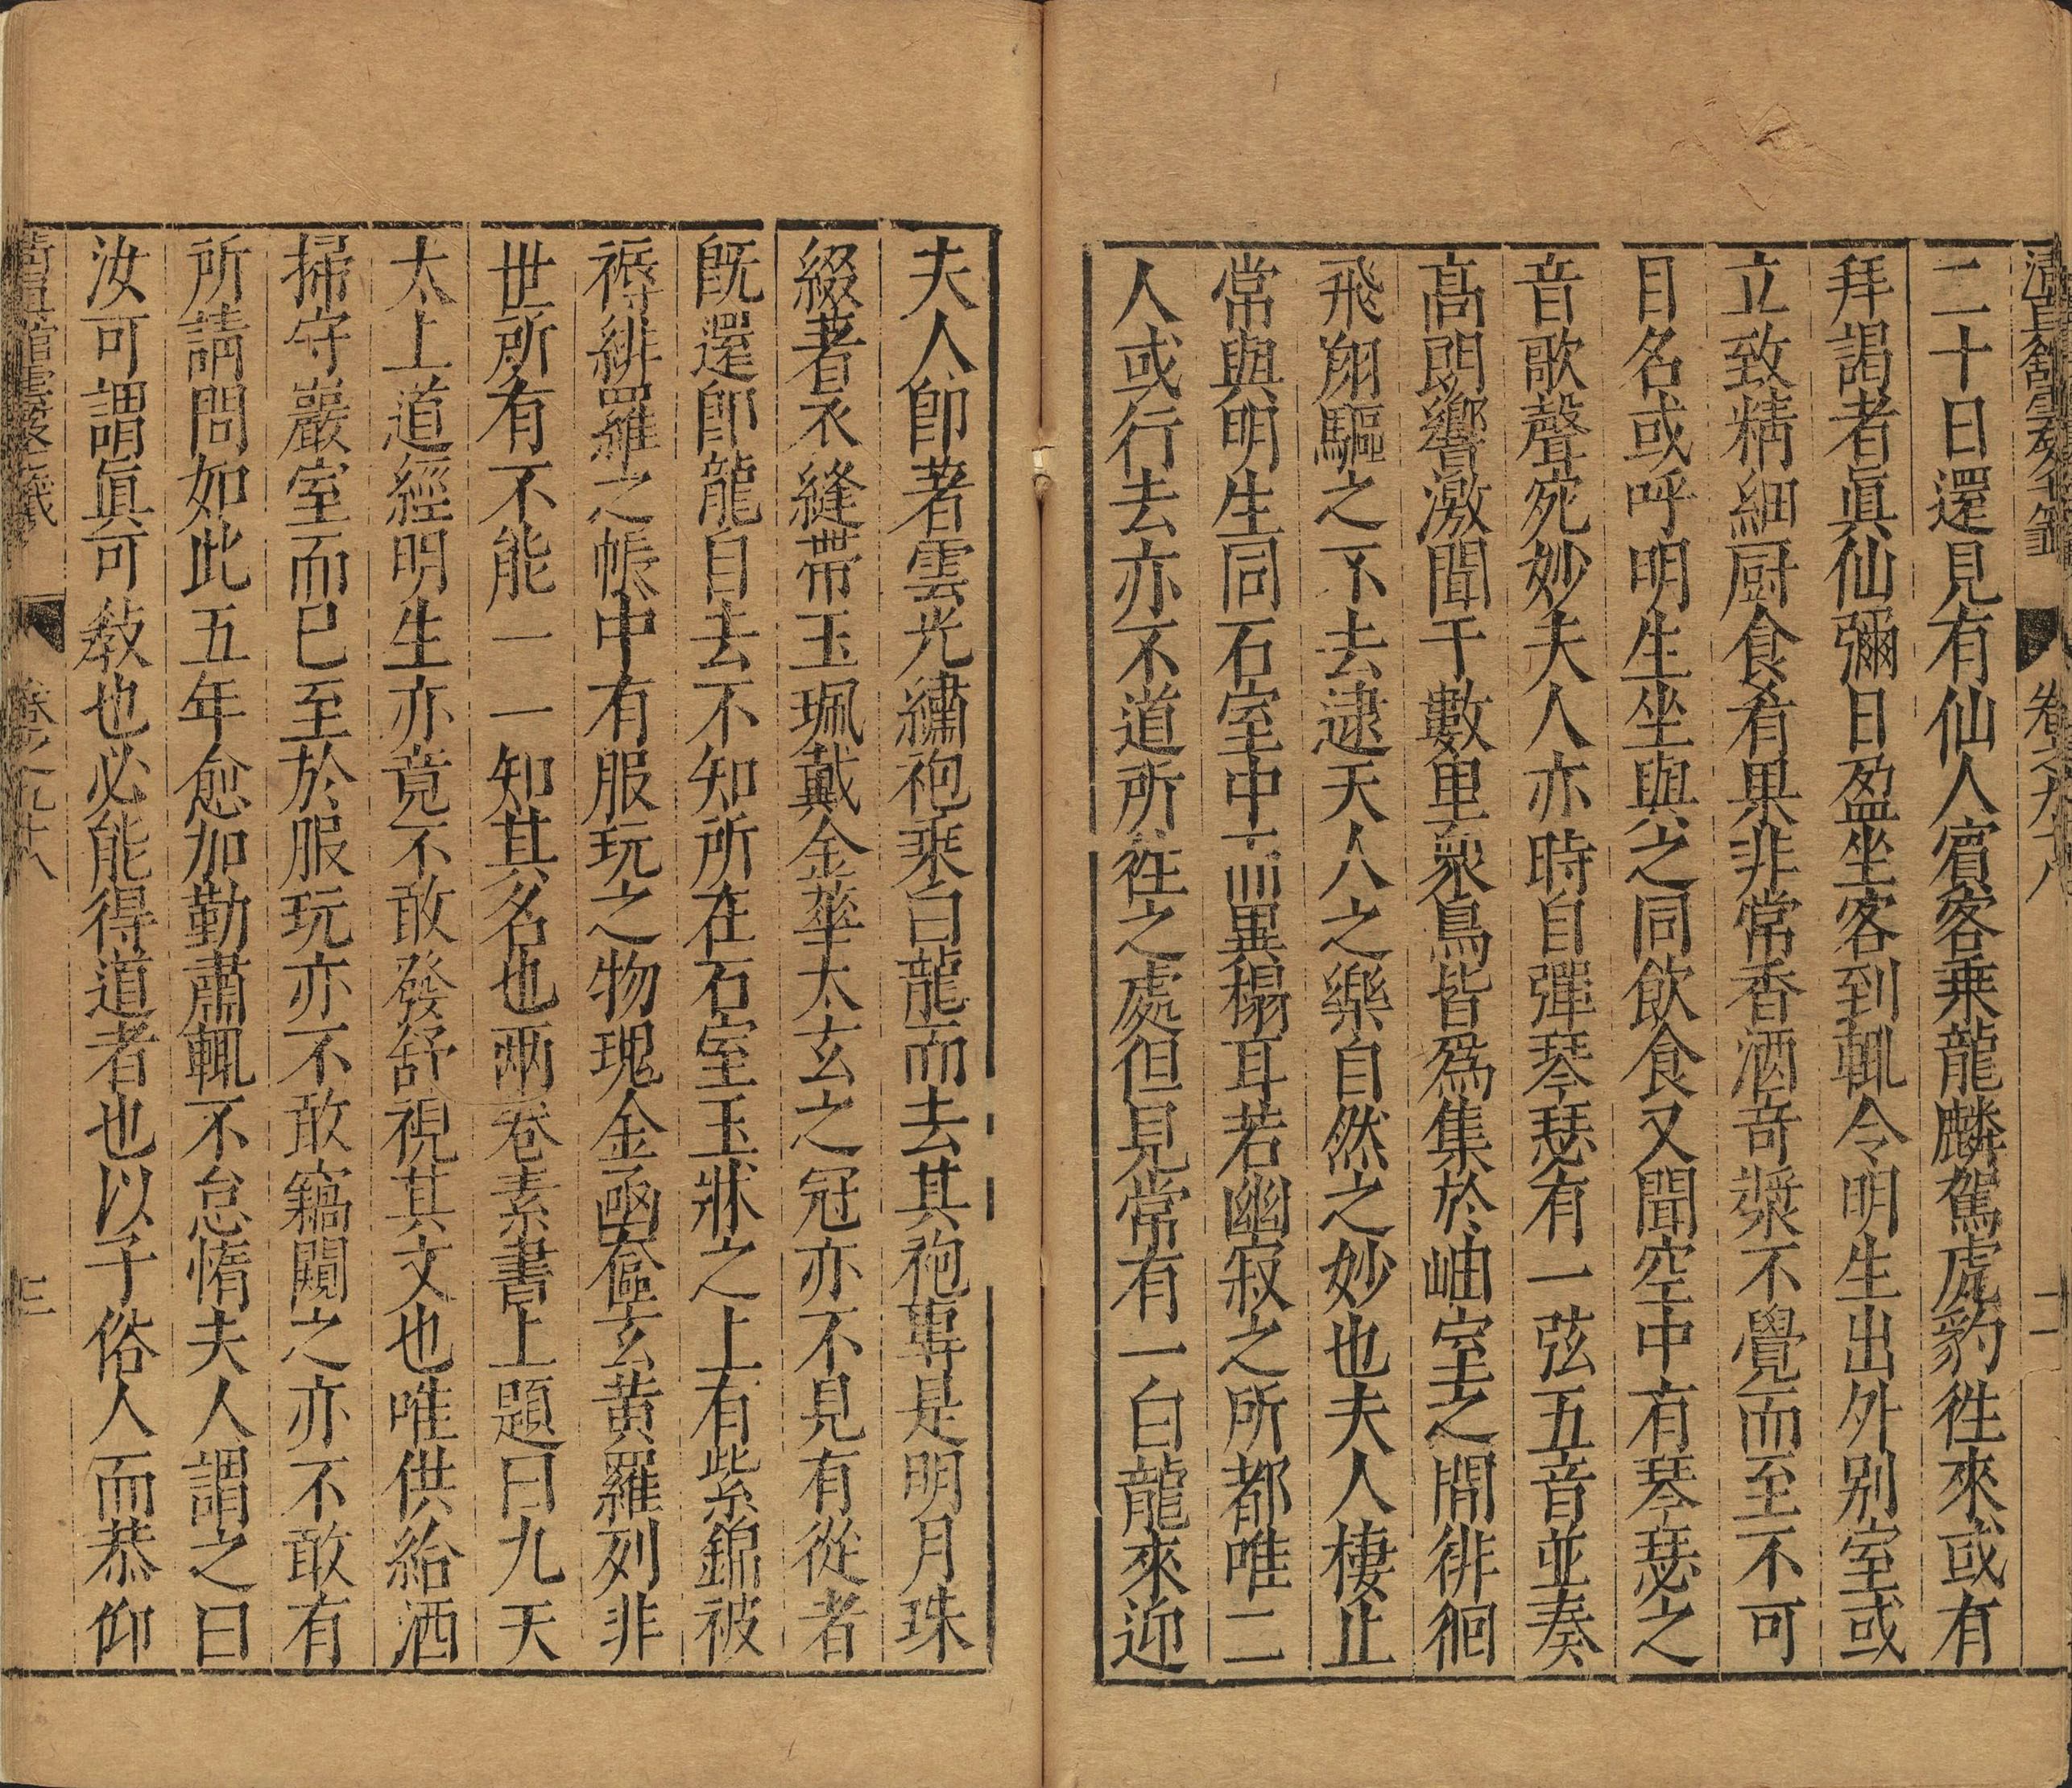 清真館雲笈七籤 卷之九十八 十一
二十日還見有仙人賓客乗龍麟駕虎豹徃來或有
拜謁者眞仙彌日盈坐客到輒令明生出外别室或
立致精細厨食肴果非常香酒竒漿不覺而至不可
目名或呼明生坐與之同飲食又聞空中有琴瑟之
音歌聲宛妙夫人亦時自彈琴瑟有一弦五音並奏
髙朗響激聞于數里衆鳥皆爲集於岫室之間徘徊
飛翔驅之不去逮天人之樂自然之妙也夫人棲止
常與明生同石室中而異榻耳若幽寂之所都唯二
人或行去亦不道所徃之處但見常有一白龍來迎
夫人卽著雲光繡袍乘白龍而去其袍專是明月珠
綴著衣縫帶玉珮戴金華太玄之冠亦不見有從者
旣還卽龍自去不知所在石室玉牀之上有紫錦被
褥緋羅之帳中有服玩之物瑰金函奩玄黃羅列非
世所有不能一一知其名也兩卷素書上題曰九天
太上道經明生亦竟不敢發舒視其文也唯供給洒
掃守巖室而已至於服玩亦不敢竊闚之亦不敢有
所請問如此五年愈加勤肅輒不怠惰夫人謂之曰
汝可謂眞可敎也必能得道者也以子俗人而恭仰
清真館雲笈七籤 卷之九十八